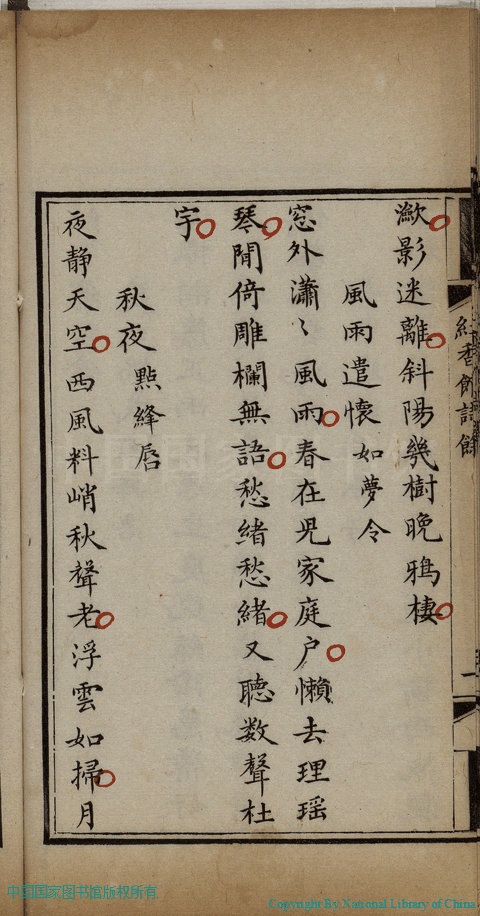 瀲影迷離斜陽幾樹晚鴉棲
風雨遣懷 如夢令
窓外瀟〻風雨春在児家庭户懶去理瑶
琴閒倚雕欄無語愁緒愁緒又聽数聲杜
宇
秋夜 點絳唇
夜靜天空西風料峭秋聲老浮雲如掃月
紅香館詩餘
一
中国国家图书馆版权所有
Copyright By National Library of China